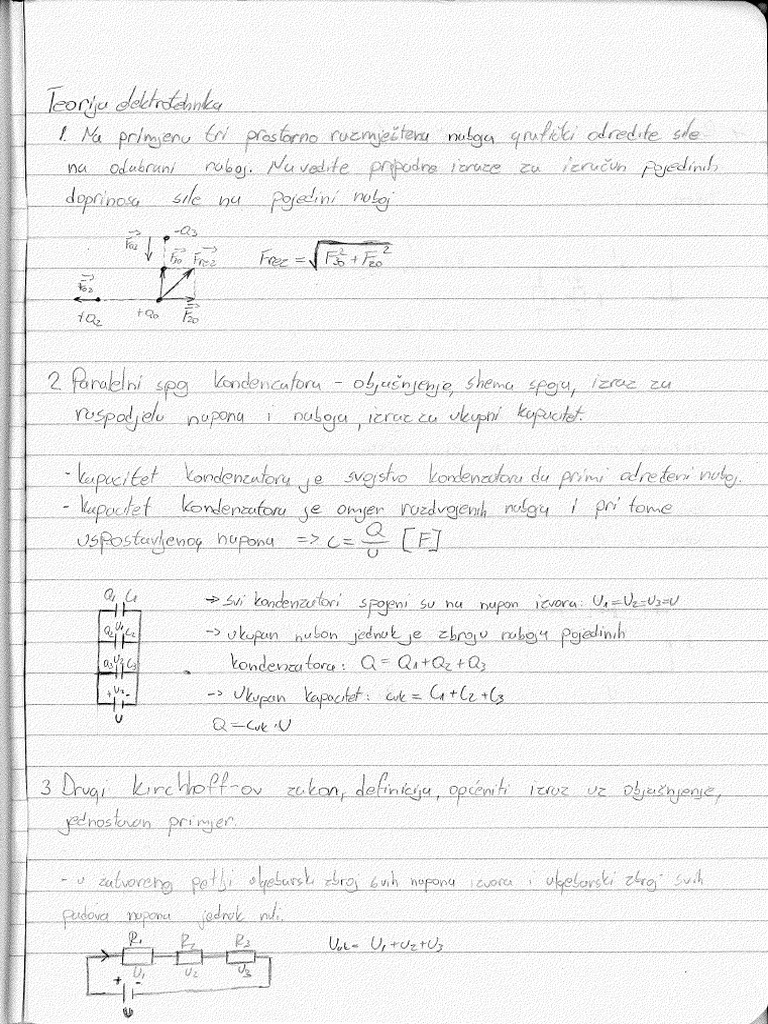 Teorija elektrotehnika
1. Na primjeru tri prostorno razmještena naboja grafički odredite sile
na odabrani naboj. Navedite pripadne izraze za izračun pojedinih
doprinosa sile na pojedini naboj
-Q3
F02 F30 Frez Frez = √(F30² + F20²)
F02
+Q2 +Q0 F20
2 Paralelni spoj kondenzatora - objašnjenje, shema spoja, izraz za
raspodjelu napona i naboja, izraz za ukupni kapacitet.
- Kapacitet kondenzatora je svojstvo kondenzatora da primi određeni naboj.
- Kapacitet kondenzatora je omjer razdvojenih naboja i pri tome
uspostavljenog napona => C = Q/U [F]
Q1 C1
Q2 U1 C2
Q3 U2 C3
+ U3 -
U
-> svi kondenzatori spojeni su na napon izvora: U1=U2=U3=U
-> ukupan nabon jednak je zbroju naboja pojedinih
kondenzatora: Q = Q1+Q2+Q3
-> Ukupan kapacitet: Cuk = C1+C2+C3
Q = Cuk · U
3 Drugi Kirchhoff-ov zakon, definicija, općeniti izraz uz objašnjenje,
jednostavan primjer.
- u zatvorenoj petlji algebarski zbroj svih napona izvora i algebarski zbroj svih
padova napona jednak nuli.
R1 R2 R3 Uuk = U1+U2+U3
U1 U2 U3
+ -
U